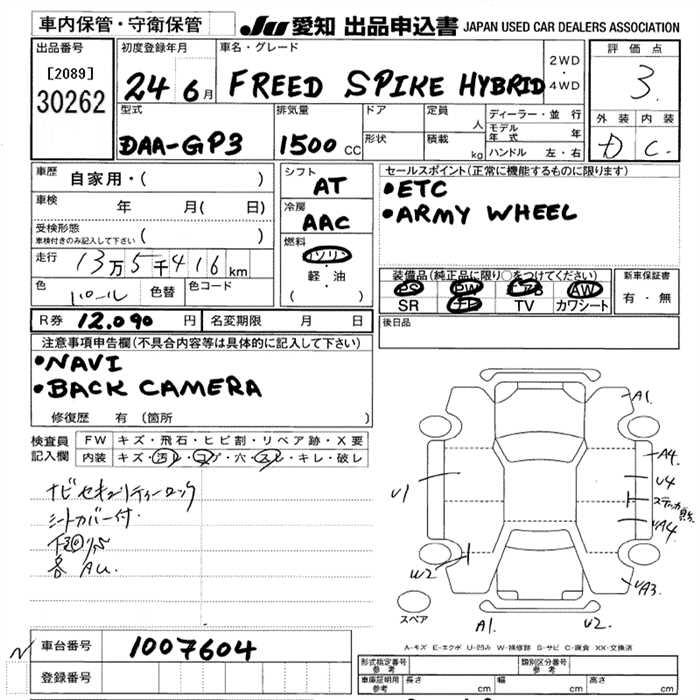 車内保管・守衛保管
JU 愛知 出品申込書 JAPAN USED CAR DEALERS ASSOCIATION
出品番号
[2089]
30262
初度登録年月
24 6月
車名・グレード
FREED SPIKE HYBRID
2WD
・
4WD
評価点
3
外装 内装
D C
型式
DAA-GP3
排気量
1500 CC
ドア
形状
定員 人
積載 kg
ディーラー・並行
モデル年式 年
ハンドル 左・右
車歴 自家用・( )
車検 年 月( 日)
受検形態
車検付きのみ記入して下さい ( )
走行 13万5千416km
色 パール 色替 色コード
シフト
AT
冷房
AAC
燃料
ガソリン
・
軽・油
( )
セールスポイント(正常に機能するものに限ります)
•ETC
•ARMY WHEEL
装備品(純正品に限り○をつけてください)
PS PW エアB AW
SR ナビ TV カワシート
新車保証書
有・無
後日品
R券 12.090 円 名変期限 月 日
注意事項申告欄(不具合内容等は具体的に記入して下さい)
•NAVI
•BACK CAMERA
修復歴 有 (箇所 )
検査員記入欄
FW キズ・飛石・ヒビ割・リペア跡・X要
内装 キズ・汚れ・コゲ・穴・スレ・キレ・破レ
ナビセキュリティーロック
シートカバー付.
下回りS
各 AU.
A1
A4
U4
U1
ステッカー
UA4
W2
UA3
スペア
A1. U2.
A-キズ E-エクボ U-凹み W-補修跡 S-サビ C-腐食 XX-交換済
車台番号 1007604
登録番号
型式指定番号 参考
類別区分番号 参考
車庫証明用 参考 長さ cm 幅 cm 高さ cm